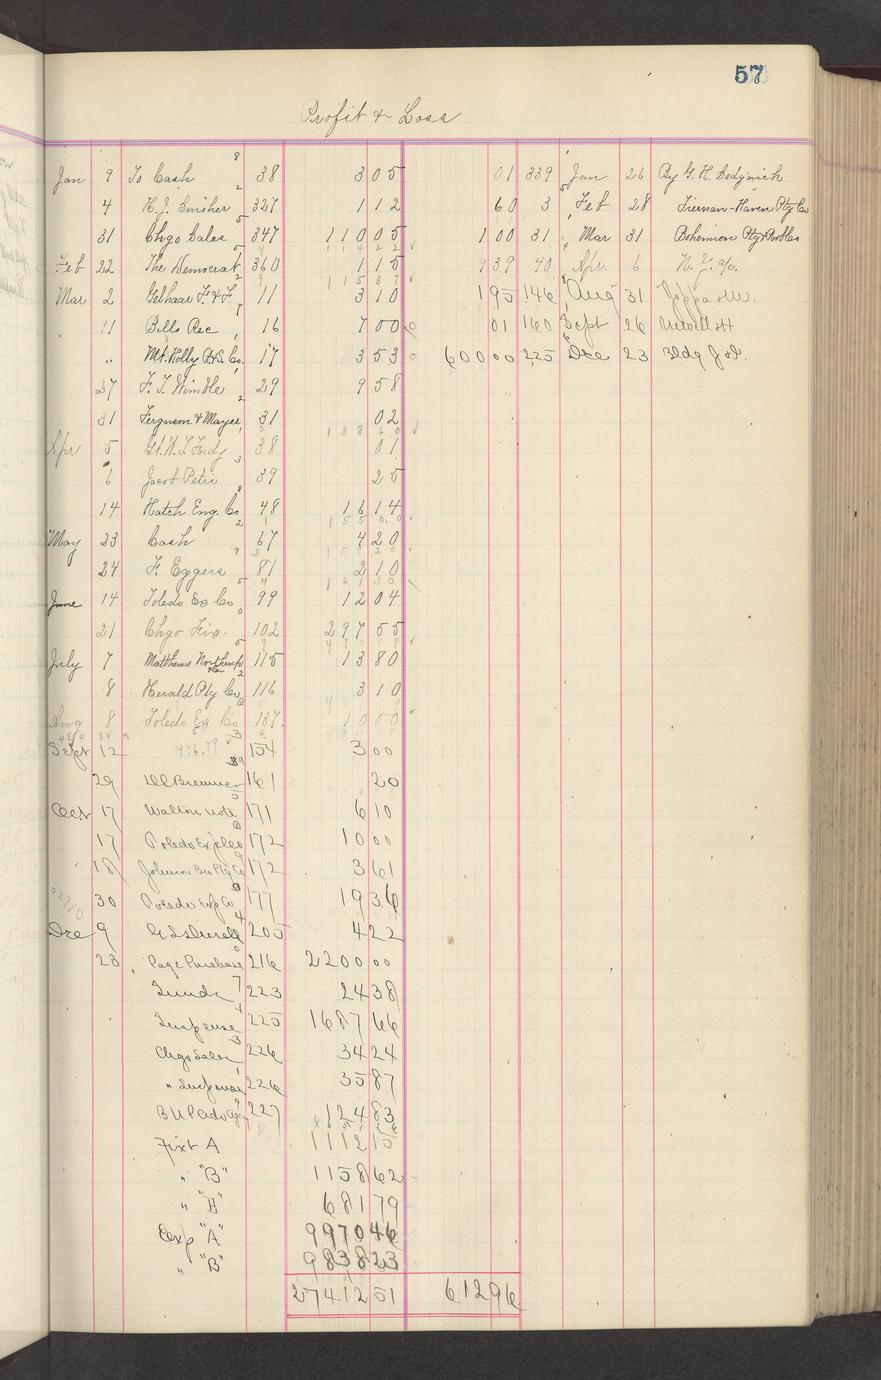 57
Profit & Loss
Jan 9 To Cash 38 3 05 01 339 Jan 26 By G. H. Sedgwick
4 H. J. Smisher 327 1 12 60 3 Feb 28 Tiernan-Haven Ptg Co
31 Chgo Sales 347 110 05 1 00 31 Mar 31 Bohemian Ptg
Feb 22 The Democrat 360 1 15 9 39 40 Apr. 6 N. Y. a/c.
Mar 2 Gelhaar F. & F. 11 3 10 1 95 146 Aug 31
11 Bills Rec 16 7 00 01 160 Sept 26
" Mt. Holly P. & S. Co. 17 3 53 600 00 225 Dec 23 Bldg Job.
27 F. T. Wimble 29 9 58
31 Ferguson & Mayer 31 02
Apr 5 Gt. W. T. Fndy 38 01
6 Jacob Peter 39 25
14 Hatch Eng. Co 48 16 14
May 23 Cash 67 4 20
24 F. Eggers 81 2 10
June 14 Toledo Eg Co 99 12 04
21 Chgo Fix. 102 297 55
July 7 Matthews Northrup 115 13 80
8 Herald Ptg Co 116 3 10
Aug 8 Toledo Eg Co 137 10 00
Sept 12 154 3 00
29 Bremner 161 20
Oct 17 Walton note 171 6 10
17 Toledo Exp Co 172 10 00
18 Johnson Bro Ptg Co 172 3 61
30 Toledo Exp Co 177 19 36
Dec 9 205 4 22
23 Page Purchase 216 2200 00
Sunds 223 24 38
Suspense 225 1687 66
Chgo Sales 226 34 24
" Suspense 226 35 87
227 124 83
Fixt A 1112 15
" "B" 1158 62
" "E" 681 79
Exp "A" 9970 46
" "B" 9838 23
27412 51 612 96